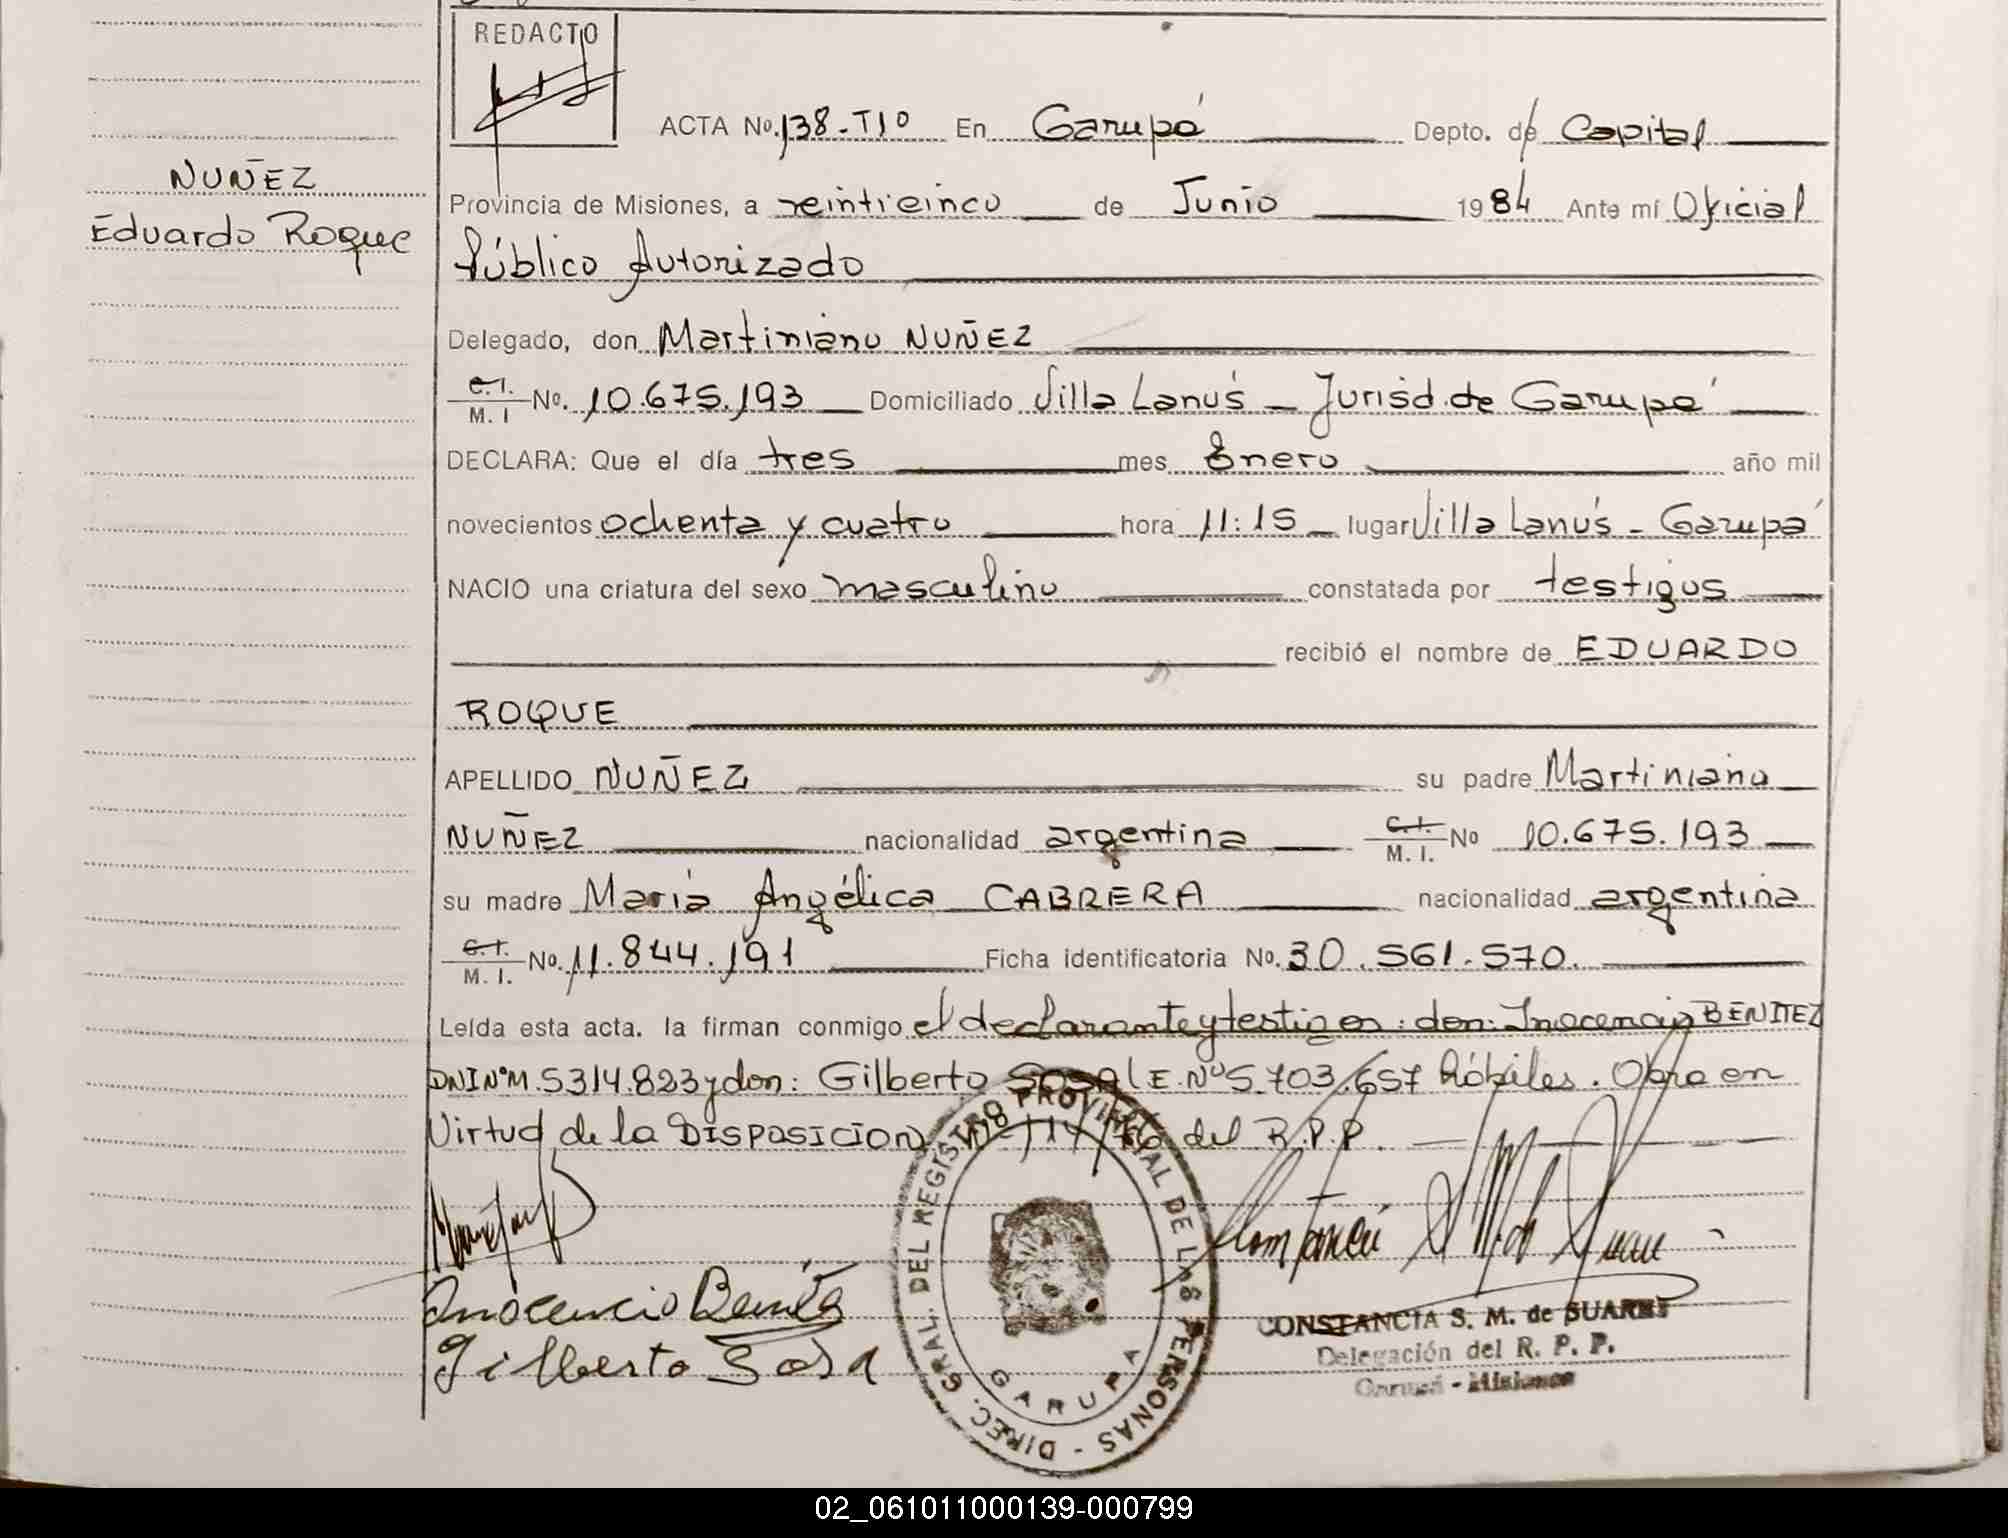 REDACTO
ACTA No. 138-Tl0 En Garupá Depto. de Capital
NUÑEZ
Eduardo Roque
Provincia de Misiones, a veinticinco de Junio 1984 Ante mí Oficial
Público Autorizado
Delegado, don Martiniano NUÑEZ
C.I. M. I No. 10.675.193 Domiciliado Villa Lanús - Jurisd. de Garupá
DECLARA: Que el día tres mes Enero año mil
novecientos ochenta y cuatro hora 11:15 lugar Villa Lanús - Garupá
NACIO una criatura del sexo masculino constatada por testigos
recibió el nombre de EDUARDO
ROQUE
APELLIDO NUÑEZ su padre Martiniano
NUÑEZ nacionalidad argentina C.I. M. I. No 10.675.193
su madre María Angélica CABRERA nacionalidad argentina
C.I. M. I. No. 11.844.191 Ficha identificatoria No. 30.561.570.
Leída esta acta. la firman conmigo el declarante y testigos: don: Inocencio BENITEZ
DNI N°M. 5314.823 y don: Gilberto SOSA L E. N° 5.703.657 hábiles. Obra en
Virtud de la DISPOSICION del R.P.P.
Inocencio Benitez
Gilberto Sosa
DIREC. GRAL. DEL REGISTRO PROVINCIAL DE LAS PERSONAS -
GARUPA
CONSTANCIA S. M. de SUAREZ
Delegación del R. P. P.
Garupá - Misiones
02_061011000139-000799